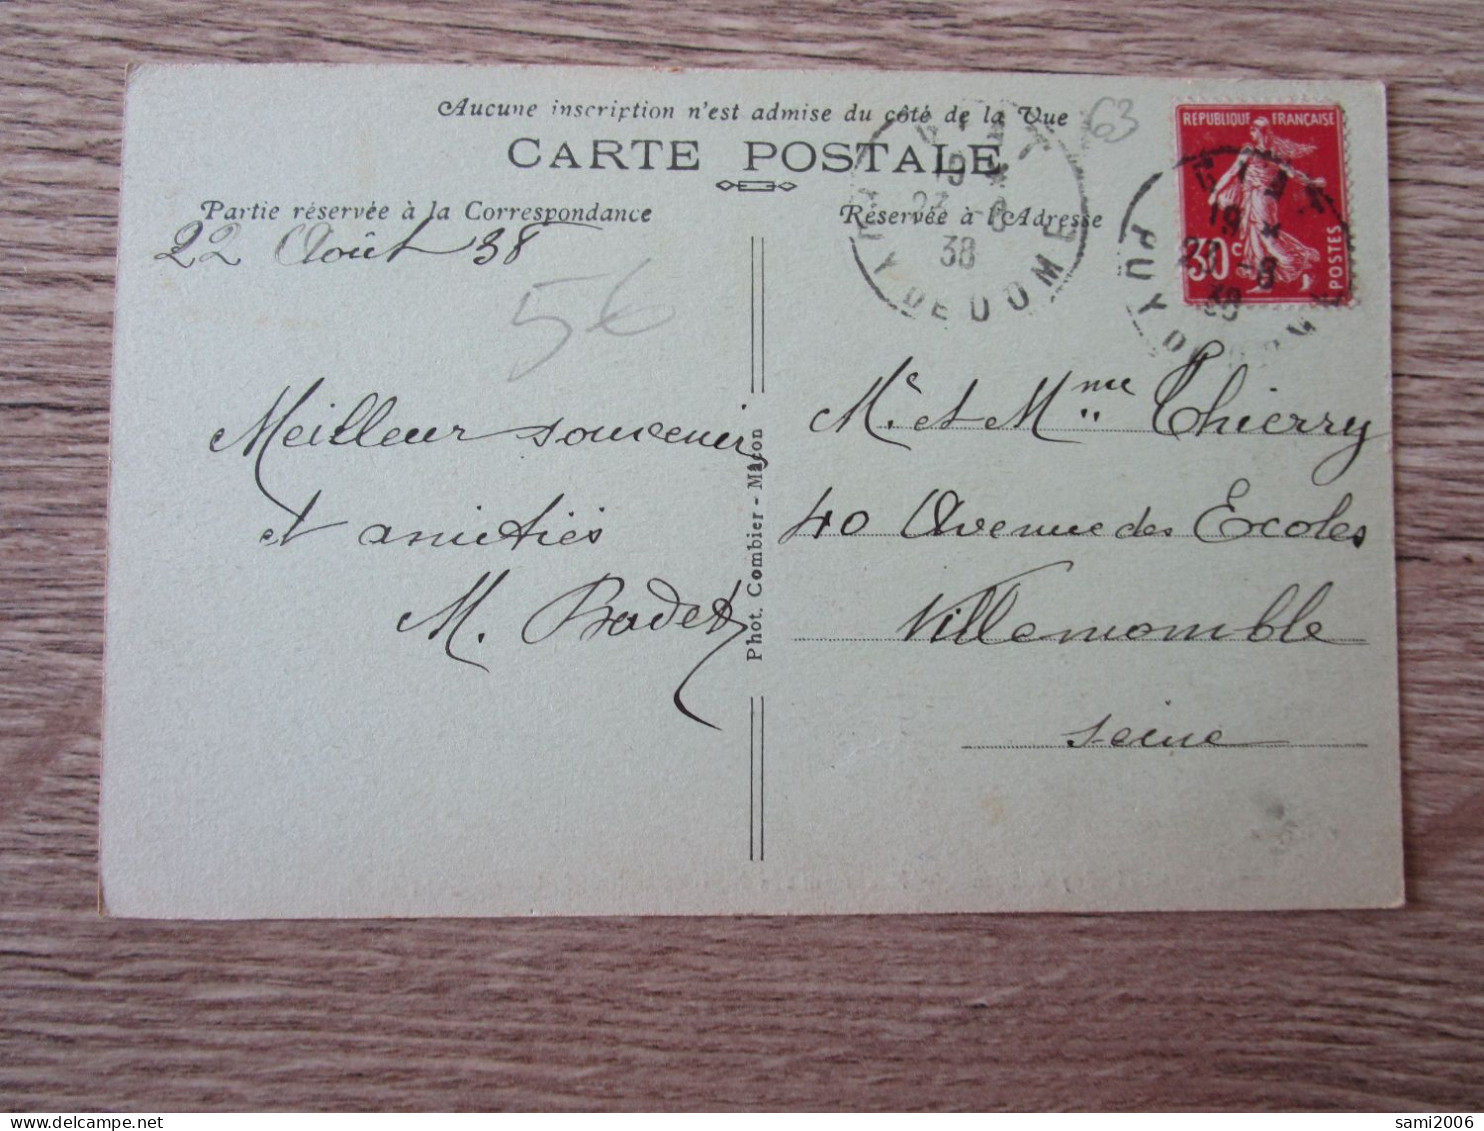 Aucune inscription n'est admise du côté de la Vue
CARTE POSTALE
Partie réservée à la Correspondance
Réservée à l'Adresse
63
RÉPUBLIQUE FRANÇAISE
30c
POSTES
38
PUY DE DOME
19
38
PUY DE
22 Août 38
56
Meilleur souvenir
et amitiés
M. Badet
Phot. Combier - Mâcon
Mr. et Mme Thierry
40 Avenue des Ecoles
Villemomble
Seine
sami2006